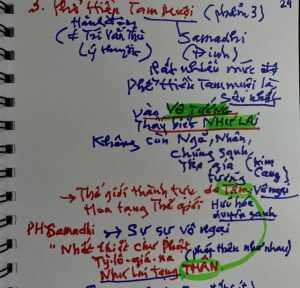 3. Phổ Hiền Tam Muội (phẩm 3)
24
Hành động
(≠ Trí Văn Thù
(Lý thuyết)
Samadhi
(Định)
Rất nhiều mức độ
Phổ Hiền Tam muội là
sâu nhất
vào VÔ TƯỚNG
Thấy biết NHƯ LAI
Không còn Ngã, Nhân,
Chúng Sanh,
Thọ giả (Kim
tướng Cang)
→ Thế giới thành tựu do Tâm, Vô ngại
Hoa tạng Thế giới
duyên sanh
PH Samadhi → Sự sự vô ngại
"Nhất thiết Chư Phật
Tỳ-lô-giá-na
Như Lai tạng THÂN